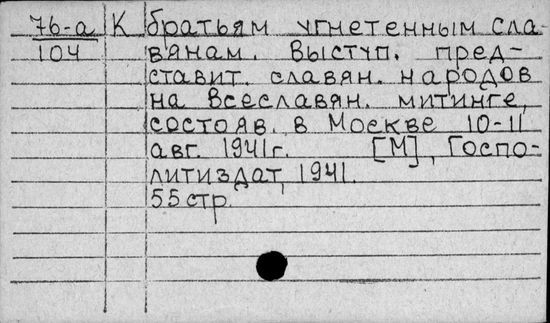 76-а К братьям угнетенным сла-
104 вянам. Выступ. пред-
ставит. славян. народов
на Всеславян. митинге,
состояв. в Москве 10-11
авг. 1941г. [М], Госпо-
литиздат, 1941.
55 стр.